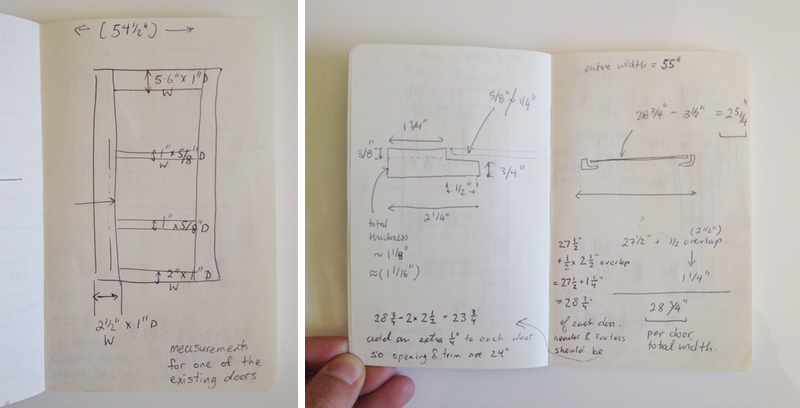 (54 1/2")
5-6" x 1" D
W
1" x 5/8" D
W
1" x 5/8" D
2" x 1" D
W
2 1/2" x 1" D
W
measurements
for one of the
existing doors
5/8" 1/4"
1 3/4"
3/8"
3/4"
1/2"
2 1/4"
total
thickness
~ 1 1/8"
≈ (1 1/16")
28 3/4 - 2 x 2 1/2 = 23 3/4
add an extra 1/4" to each door
so opening & trim are 24"
entire width = 55"
28 3/4" - 3 1/2" = 25 1/4"
27 1/2"
+ 1/2 x 2 1/2 overlap
= 27 1/2 + 1 1/4
= 28 3/4"
(2 1/2")
27 1/2" + 1/2 overlap
1 1/4"
28 3/4"
per door
total width.
of each door.
header &
should be